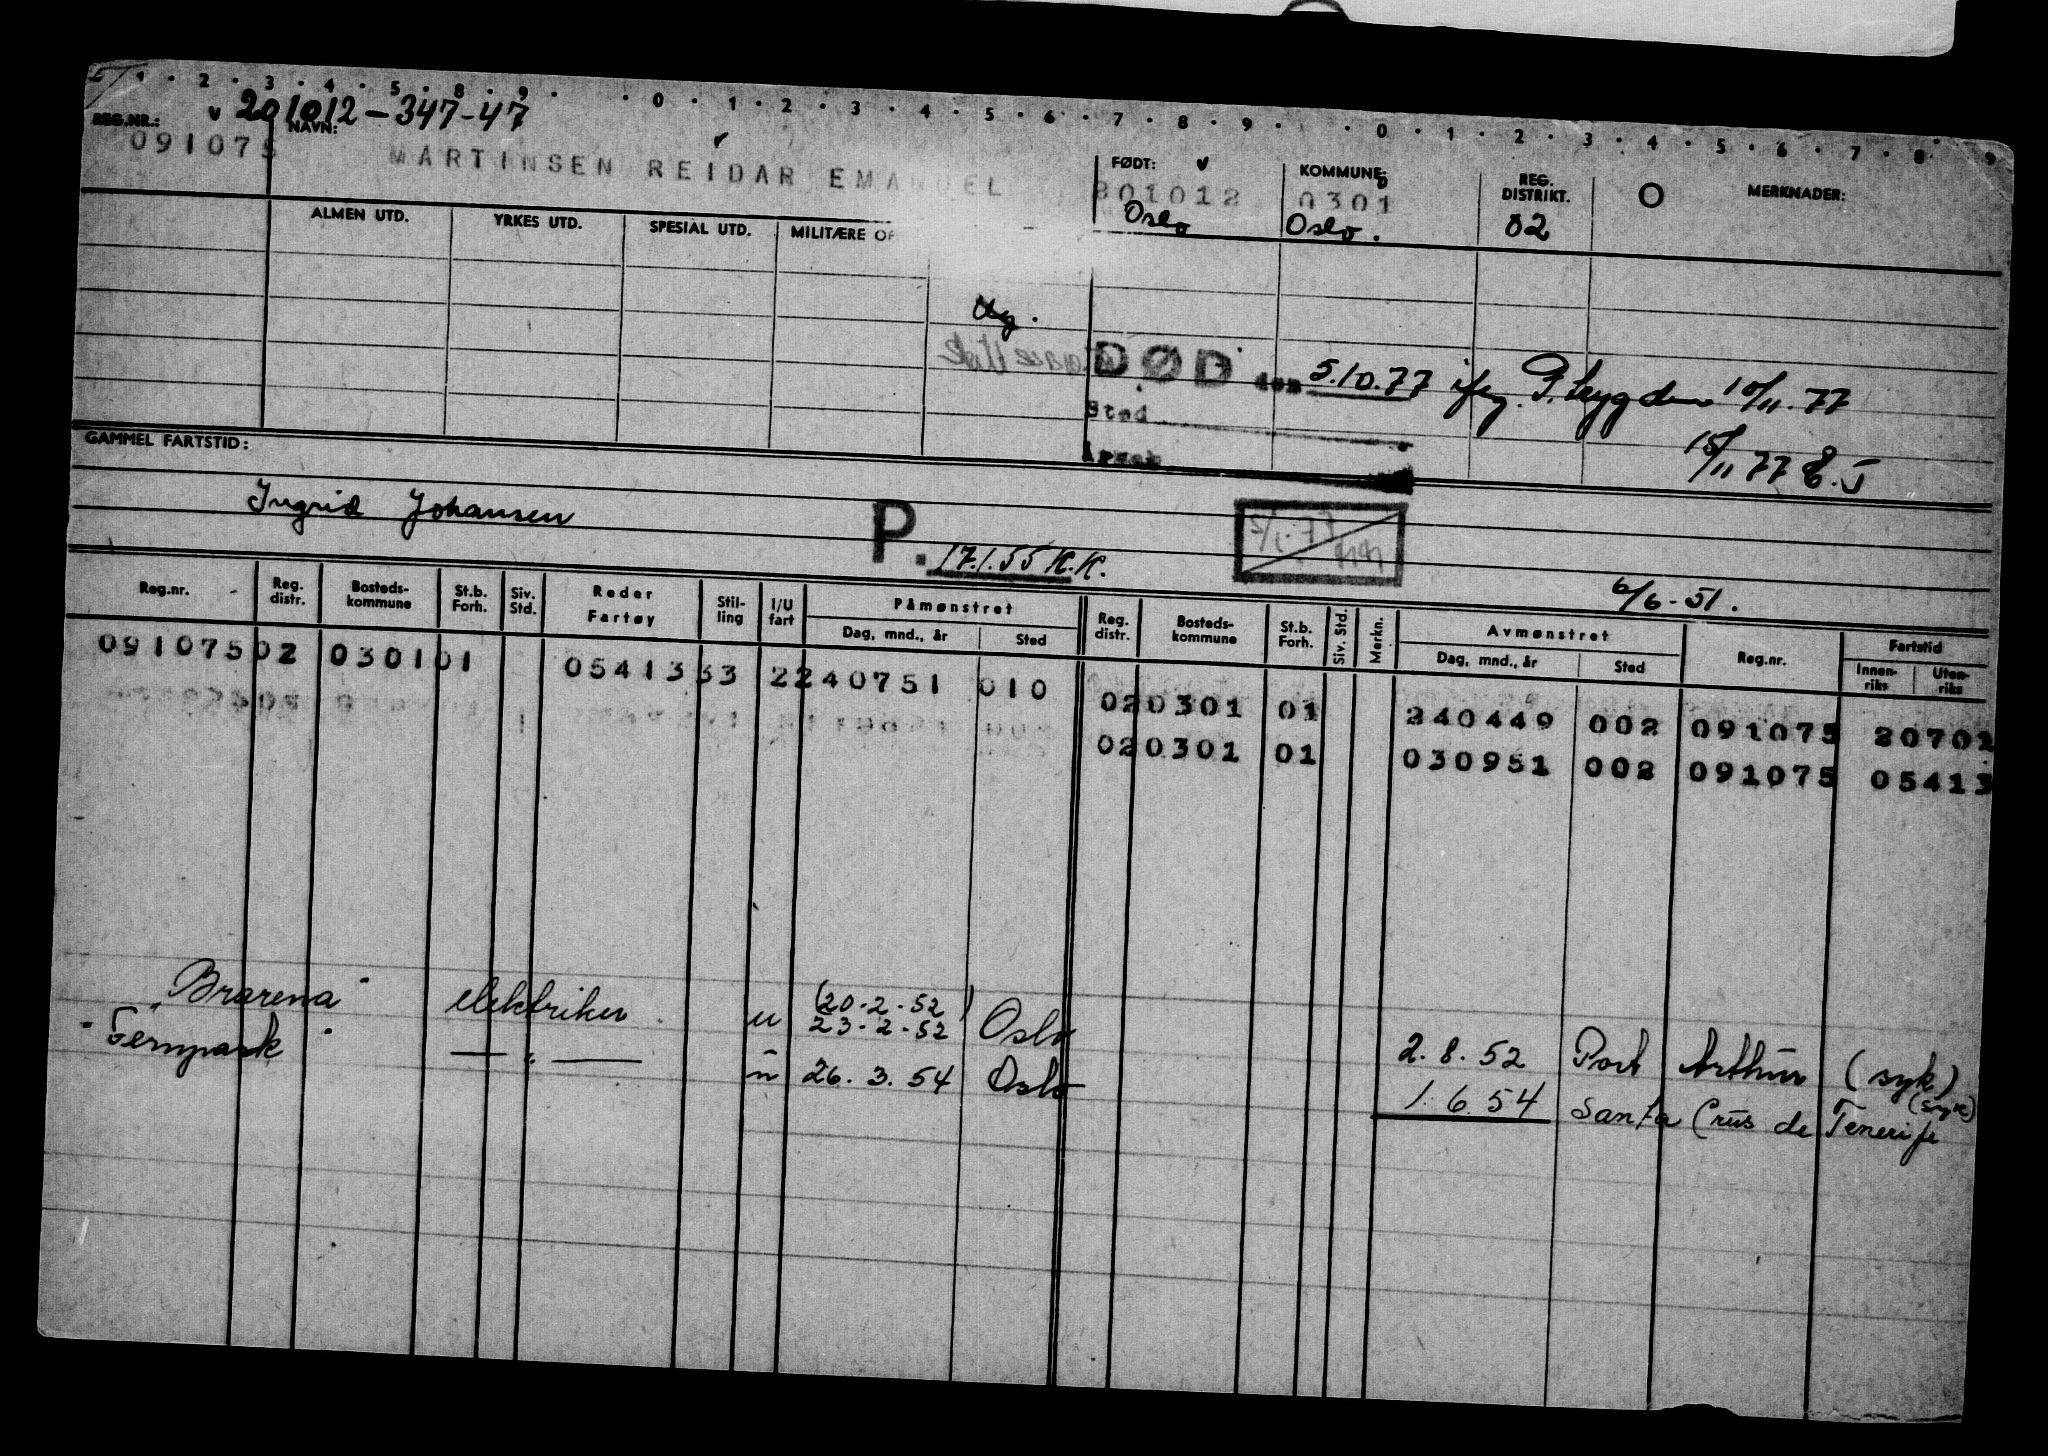 1 · 2 · 3 · 4 · 5 · 8 · 9 · · 0 · 1 · 2 · 3 · 4 · 5 · 6 · 7 · 8 · 9 · · 0 · 1 · 2 · 3 · 4 · 5 · 6 · 7 · 8 · 9
v 201012-347-47
REG.NR.: NAVN: FØDT: v KOMMUNE: REG. DISTRIKT. O MERKNADER:
091075 MARTINSEN REIDAR EMANUEL 201012 0301
Oslo Oslo. 02
ALMEN UTD. YRKES UTD. SPESIAL UTD. MILITÆRE
Ug.
DØD den 5.10.77 iflg. P. 10/11.77
Sted
15/11 77
GAMMEL FARTSTID:
Ingrid Johansen
P. 17.1.55 K.K.
6/6-51.
Reg.nr. Reg. distr. Bosteds- kommune St.b. Forh. Siv. Std. Reder Fartøy Stil- ling I/U fart Påmønstret Dag, mnd., år Sted Reg. distr. Bosteds- kommune St.b. Forh. Siv. Std. Merkn. Avmønstret Dag, mnd., år Sted Reg.nr. Fartstid Innen- riks Uten- riks
091075 02 0301 01 05413 33 2 240751 010
02 0301 01 240449 002 091075 20701
02 0301 01 030951 002 091075 05413
"Brarena" elektriker u (20-2-52) 23-2-52 Oslo 2.8.52 Port Arthur (syk)
"Fernpark" — " — u 26.3.54 Oslo 1.6.54 Santa Crus de Tenerife (syk)